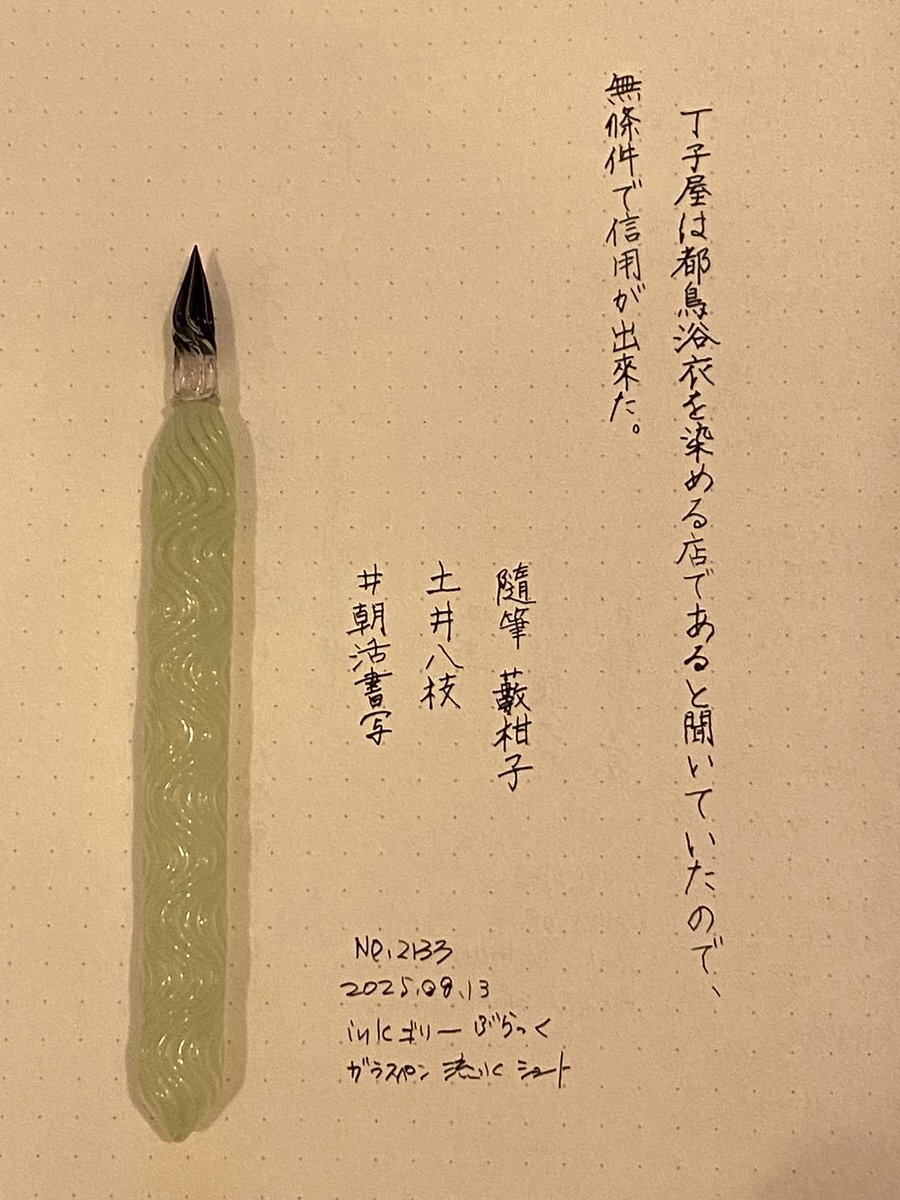 丁子屋は都鳥浴衣を染める店であると聞いていたので、
無條件で信用が出來た。
隨筆 藪柑子
土井八枝
#朝活書写
No.2133
2025.09.13
inkギリーぶらっく
ガラスペン ショート